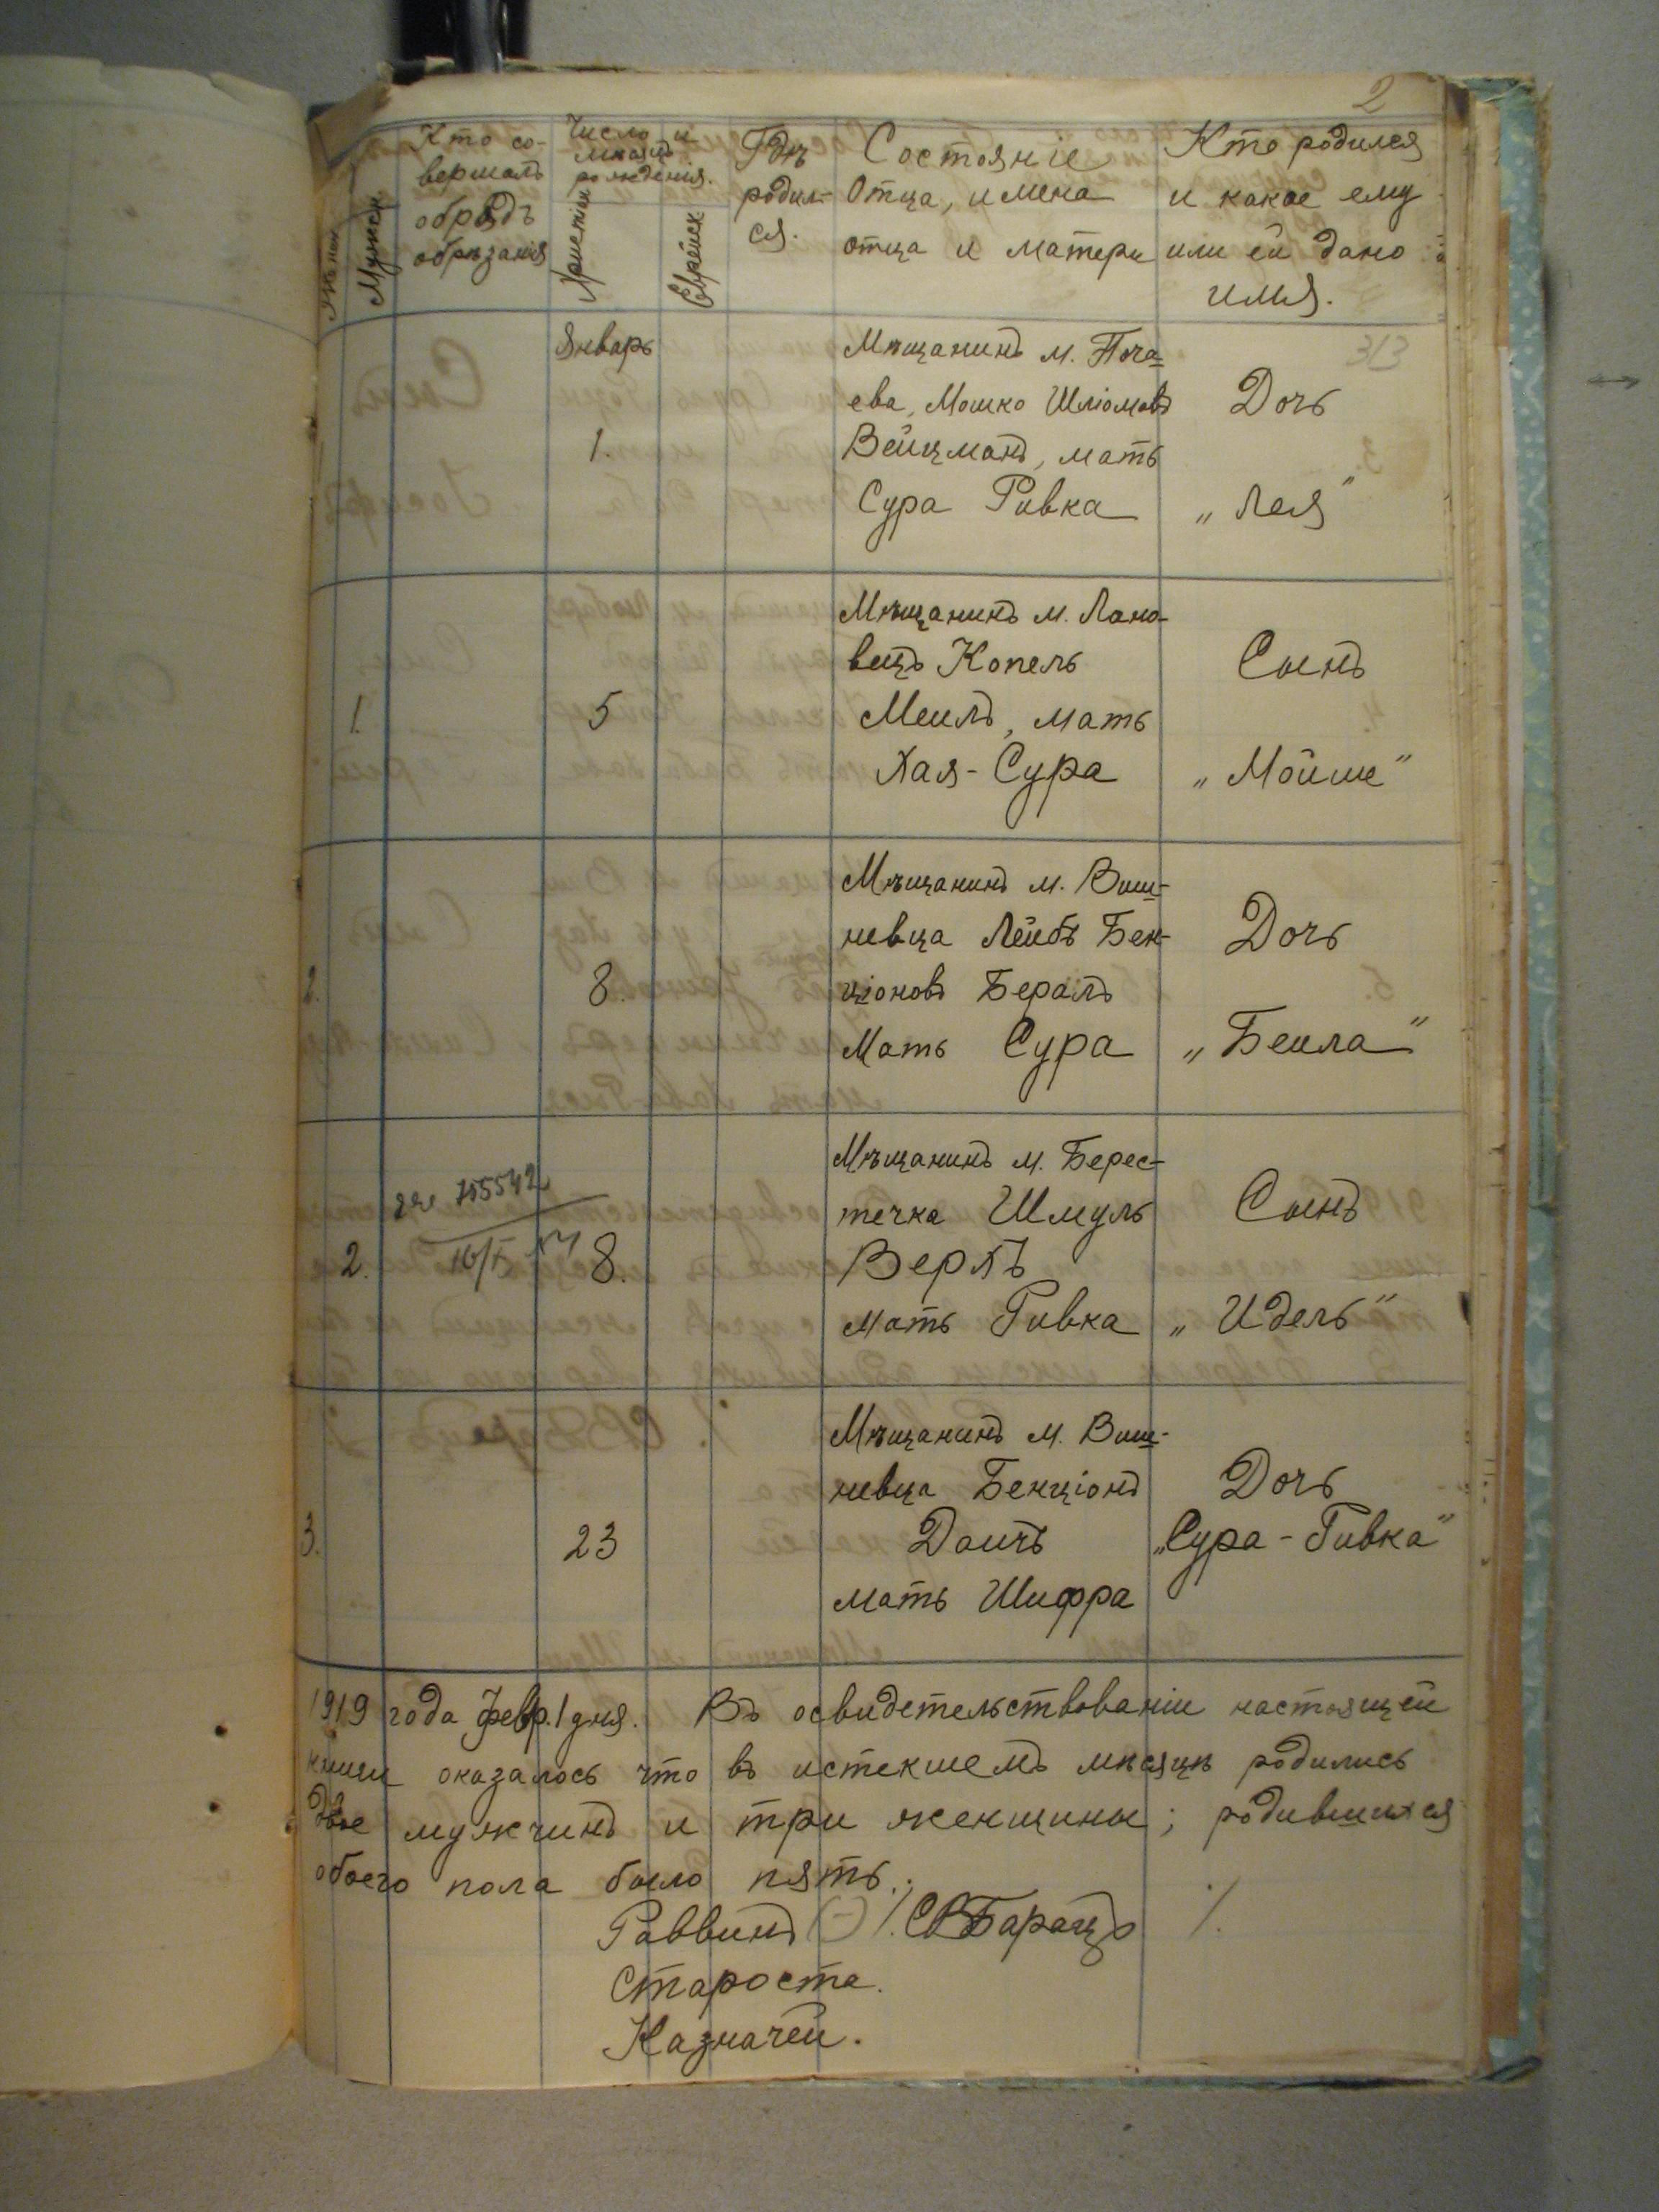 2
Женск.
Мужск.
Кто со-
вершалъ
обрядъ
обрѣзанія
Число и
мѣсяцъ
рожденія.
Христіан
Еврейск
Гдѣ
родил-
ся.
Состояніе
Отца, имена
отца и матери
Кто родился
и какое ему
или ей дано
имя.
313
Январь
1.
Мѣщанинъ м. Поча-
ева, Мошко Шліомовъ
Вейцманъ, мать
Сура Ривка
Дочь
„Лея"
1.
5
Мѣщанинъ м. Лано-
вецъ Копель
Меилъ, мать
Хая-Сура
Сынъ
„Мойше"
2.
8.
Мѣщанинъ м. Виш-
невца Лейбъ Бен-
ціоновъ Бералъ
Мать Сура
Дочь
„Беила"
2.
155542
8.
Мѣщанинъ м. Берес-
течка Шмуль
Верхъ
мать Ривка
Сынъ
„Идель"
3.
23
Мѣщанинъ м. Виш-
невца Бенціонъ
Даичъ
мать Шифра
Дочь
„Сура-Ривка"
1919 года февр. 1 дня. Въ освидетельствованіи настоящей
книги оказалось что въ истекшемъ мѣсяцѣ родились
двое мужчинъ и три женщины; родившихся
обоего пола было пять.
Раввинъ (-) /. СВБарацъ /.
Староста.
Казначей.